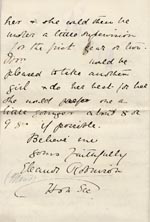 her & she would then be
under a little supervision
for the first year or two.
would be
pleased to take another
girl & do her best for her
She would prefer one a
little younger about 8 or
9 if possible.
Believe me
Yours faithfully
Eleanor Robinson
Hon Sec